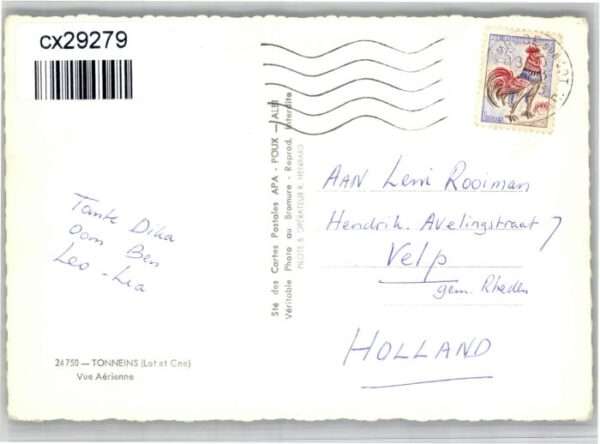 cx29279
Tante Dika
Oom Ben
Leo - Lia
24750 — TONNEINS (Lot et Gne)
Vue Aérienne
Sté des Cartes Postales APA - POUX - ALBI
Véritable Photo au Bromure - Reprod. Interdite
PILOTE & OPÉRATEUR R. HENRARD
AAN Leni Rooiman
Hendrik Avelingstraat 7
Velp
gem. Rheden
HOLLAND